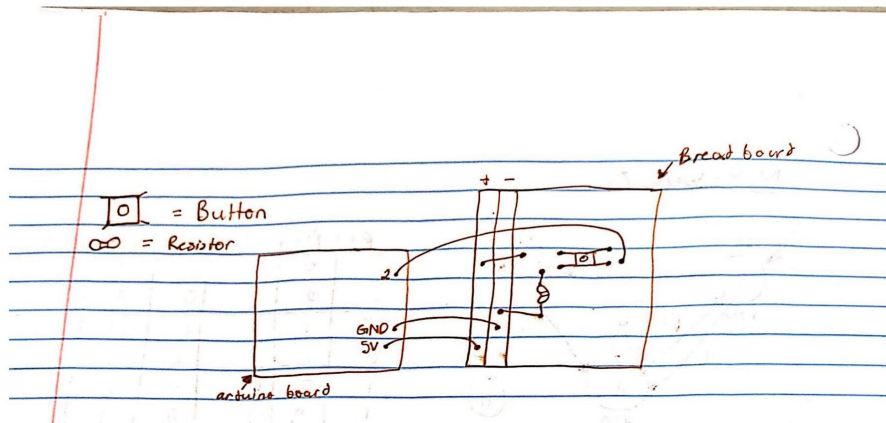 Bread board
+ -
= Button
= Resistor
2
GND
5V
arduino board